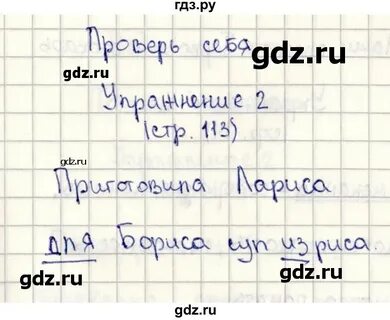 гдз.ру
Проверь себя
gdz.ru gdz.ru
Упражнение 2
(стр. 113)
gdz.ru gdz.ru
Приготовила Лариса
gdz.ru
для Бориса суп из риса.
gdz.ru gdz.ru